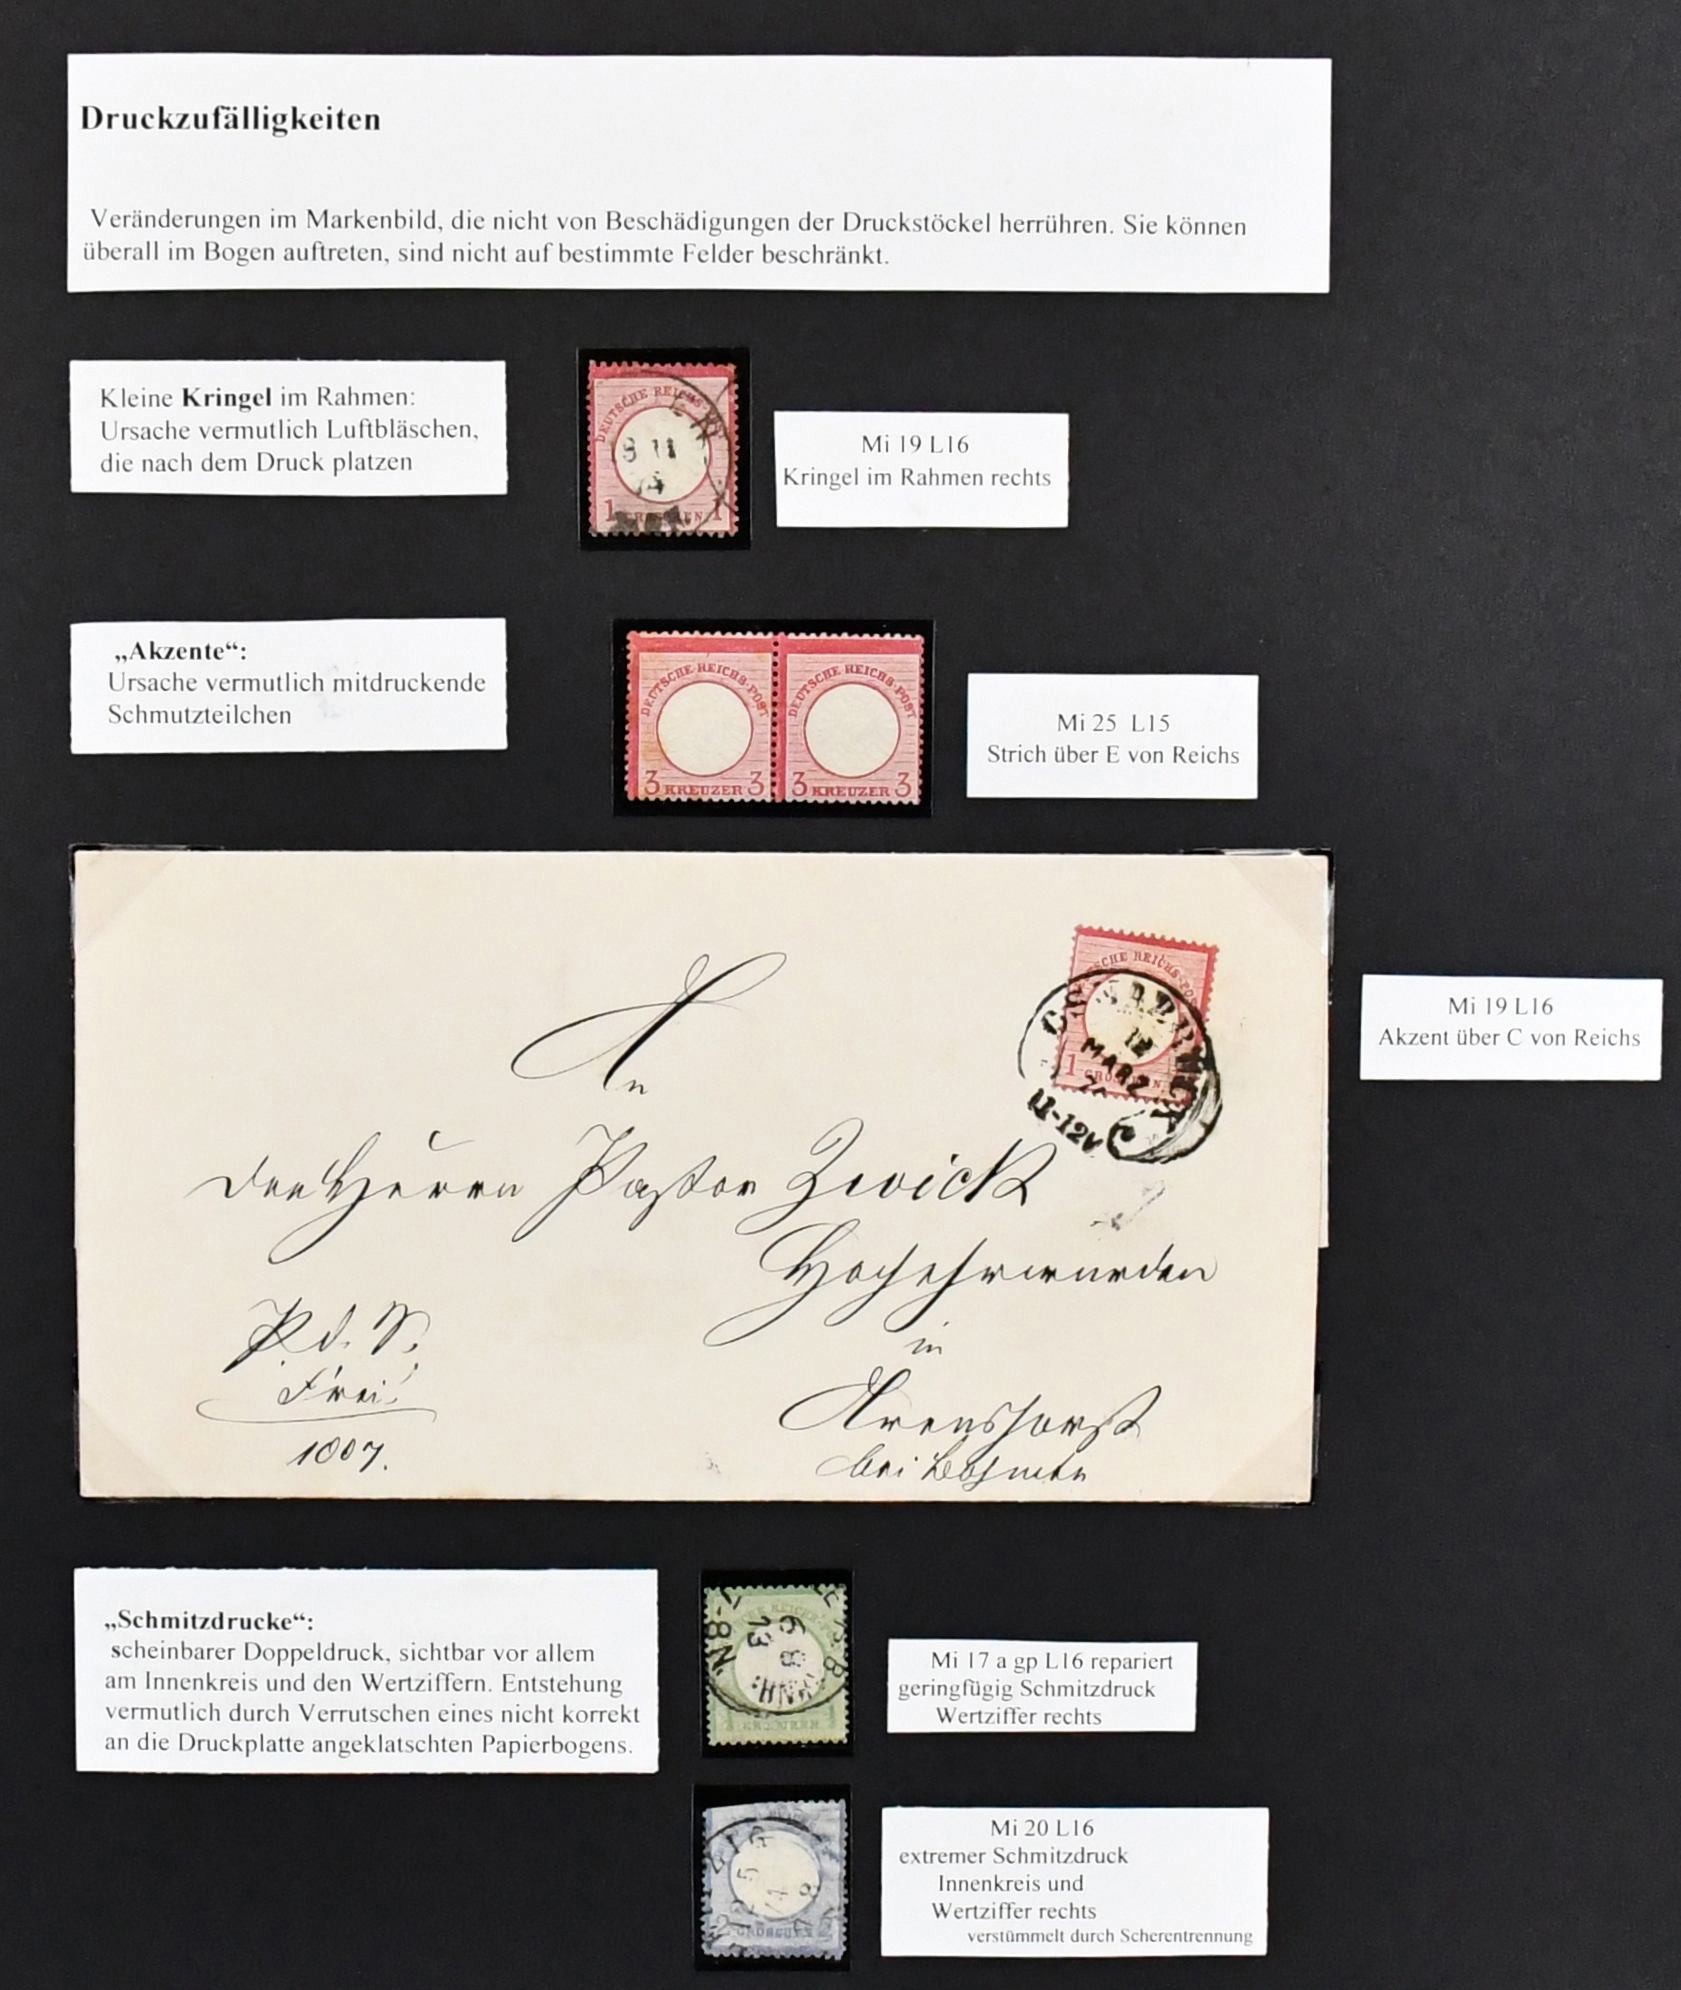 Druckzufälligkeiten
Veränderungen im Markenbild, die nicht von Beschädigungen der Druckstöckel herrühren. Sie können
überall im Bogen auftreten, sind nicht auf bestimmte Felder beschränkt.
Kleine Kringel im Rahmen:
Ursache vermutlich Luftbläschen,
die nach dem Druck platzen
DEUTSCHE REICHS-
8 11
74
1 GROSCHEN 1
Mi 19 L16
Kringel im Rahmen rechts
„Akzente“:
Ursache vermutlich mitdruckende
Schmutzteilchen
DEUTSCHE REICHS-POST
3 KREUZER 3
DEUTSCHE REICHS-POST
3 KREUZER 3
Mi 25 L15
Strich über E von Reichs
REICHS-POS
12
MÄRZ
1 GROSCHEN
11-12V
An
den Herrn Pastor Zwick
Hochehrwürden
in
Arenshorst
bei Bohmte
P. d. S.
Frei!
1007.
Mi 19 L16
Akzent über C von Reichs
„Schmitzdrucke“:
scheinbarer Doppeldruck, sichtbar vor allem
am Innenkreis und den Wertziffern. Entstehung
vermutlich durch Verrutschen eines nicht korrekt
an die Druckplatte angeklatschten Papierbogens.
6 8
73
-8N.
KREUZER
Mi 17 a gp L16 repariert
geringfügig Schmitzdruck
Wertziffer rechts
2 GROSCHEN
Mi 20 L16
extremer Schmitzdruck
Innenkreis und
Wertziffer rechts
verstümmelt durch Scherentrennung